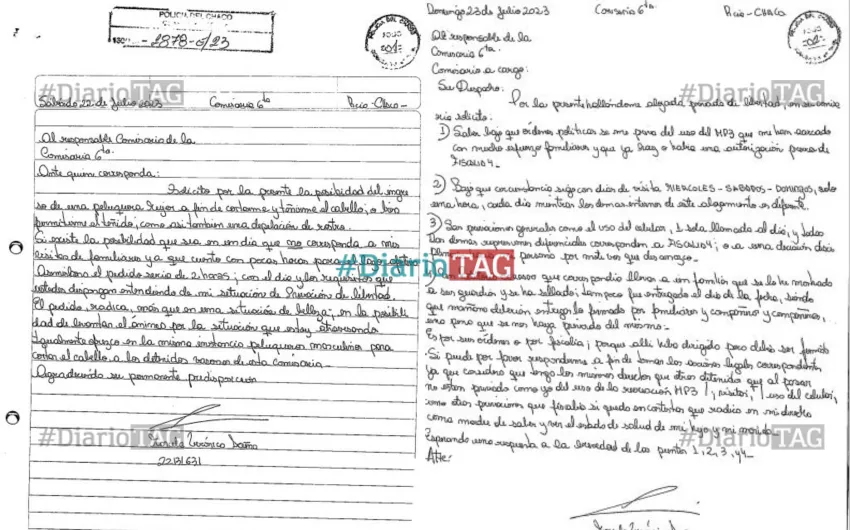 POLICIA DEL CHACO
2878-E/23
#DiarioTAG
Sábado 22 de Julio 2023 Comisaría 6ta Pcia-Chaco-
Al responsable Comisaría de la
Comisaría 6ta.
Ante quien corresponda:
Solicito por la presente la posibilidad del ingre
so de una peluquera mujer a fin de cortarme y teñirme el cabello, o bien
permitirme el teñido, como así también una depilación de rostro.
Si existe la posibilidad que sea en un día que no corresponda a mis
visitas de familiares ya que cuento con pocas horas para
Asimilara el pedido sería de 2 horas; con el día y los requisitos que
ustedes dispongan entendiendo de mi situación de Privación de libertad.
El pedido, radica, más que en una situación de belleza; en la posibili
dad de levantar el ánimo por la situación que estoy atravesando.
Igualmente ofrezco en la misma instancia peluquero masculino para
cortar el cabello a los detenidos varones de esta comisaría.-
Agradeciendo su permanente predisposición
#DiarioTAG
22131631
Domingo 23 de Julio 2023 Comisaría 6ta Pcia-CHACO
Al responsable de la
Comisaría 6ta.
Comisario a cargo:
Su Despacho:
#DiarioTAG
Por la presente hallándome alojada privada de libertad, en su comisa
ría solicito:
1) Saber bajo que órdenes políticas se me priva del uso del MP3 que me han acercado
con mucho esfuerzo familiares y que ya hay o había una autorización previa de
FISCALIA 4.
2) Bajo que circunstancia sigo con días de visita MIERCOLES - SABADOS - DOMINGOS, solo
una hora, cada día mientras los demás internos de este alojamiento es diferente.
3) Son privaciones generales como el uso del celular, 1 sola llamada al día, y todas
las demás represiones diferenciales corresponden a FISCALIA 4; o a una decisión
persona por motivos que desconozco.-
#DiarioTAG
a ser guardia y se ha sellado; tampoco fue entregado el día de la fecha, siendo
que mañana deberían entregarlo firmado por familiares y compañeros y compañeras,
sino para que se nos haya privado del mismo:-
Es por sus órdenes o por fiscalía; porque allí hubo dirigido pero debía ser
Si puede por favor respondernos a fin de tomar las acciones legales correspondientes
ya que considero que tengo los mismos derechos que otros detenidos que al parecer
no están privados como yo del uso de la recreación MP3 1, visitas, 1 uso del celular,
como otras privaciones que
como madre de saber y ver el estado de salud de mi hijo y mi marido.-
Esperando una respuesta a la brevedad de los puntos 1, 2, 3, y 4.-
Atte:
#DiarioTAG